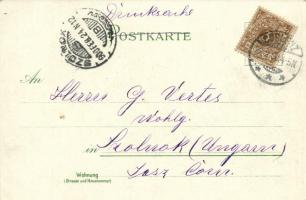 Drucksache
POSTKARTE
An
Herrn G. Vertes
Wohlg.
in Szolnok (Ungarn)
Jasz Com.
Wohnung
(Strasse und Hausnummer)